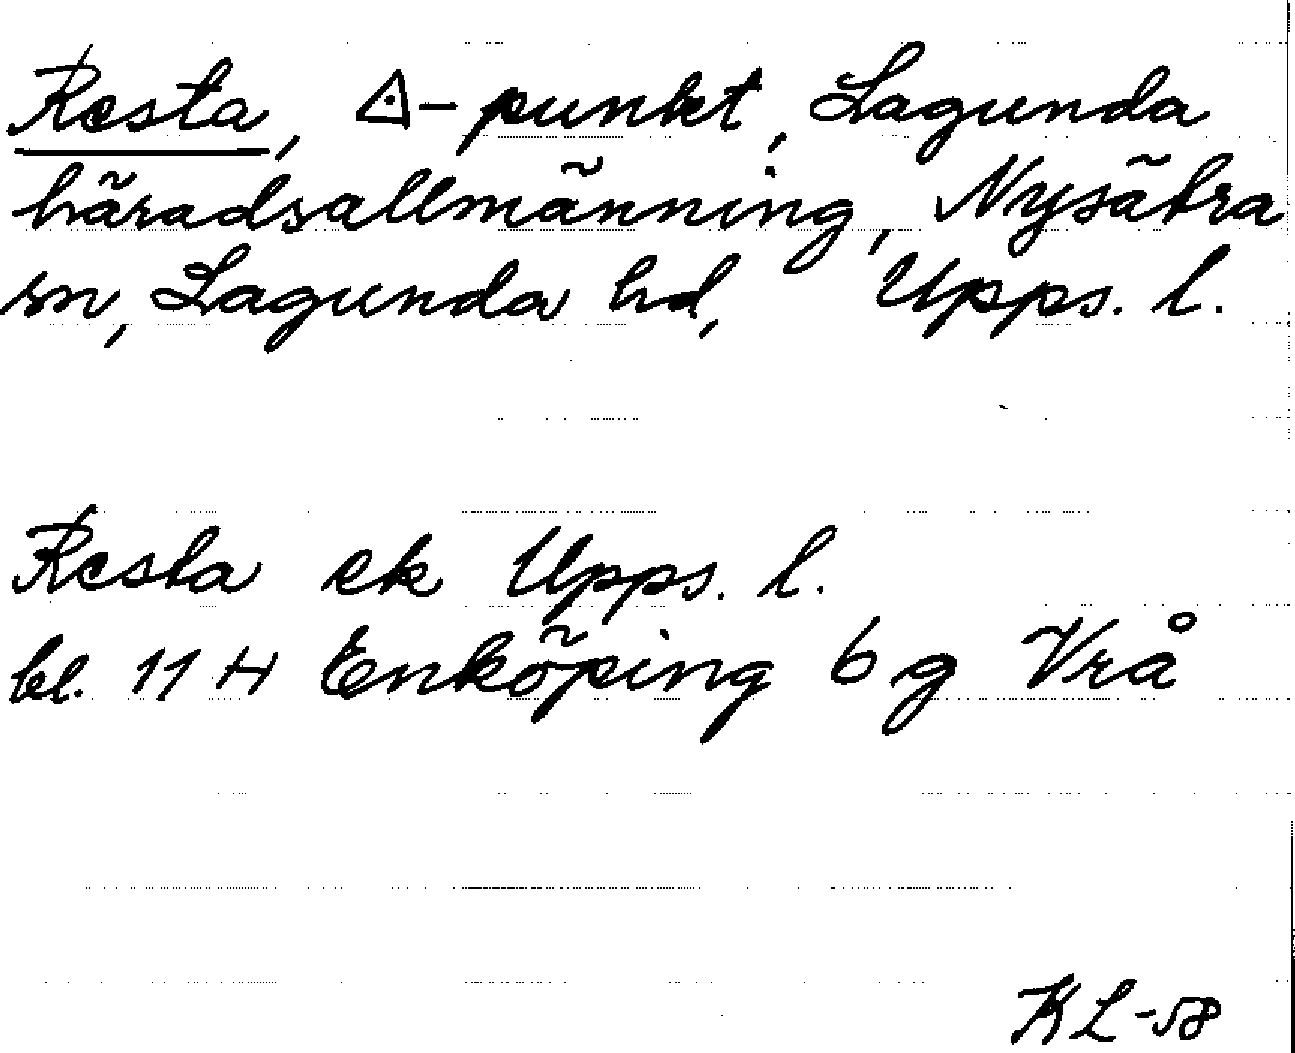 Resta, ◬-punkt, Lagunda
häradsallmänning, Nysätra
sn, Lagunda hd, Upps. l.
Resta ek Upps. l.
bl. 11 H Enköping 6 g Vrå
KL-58